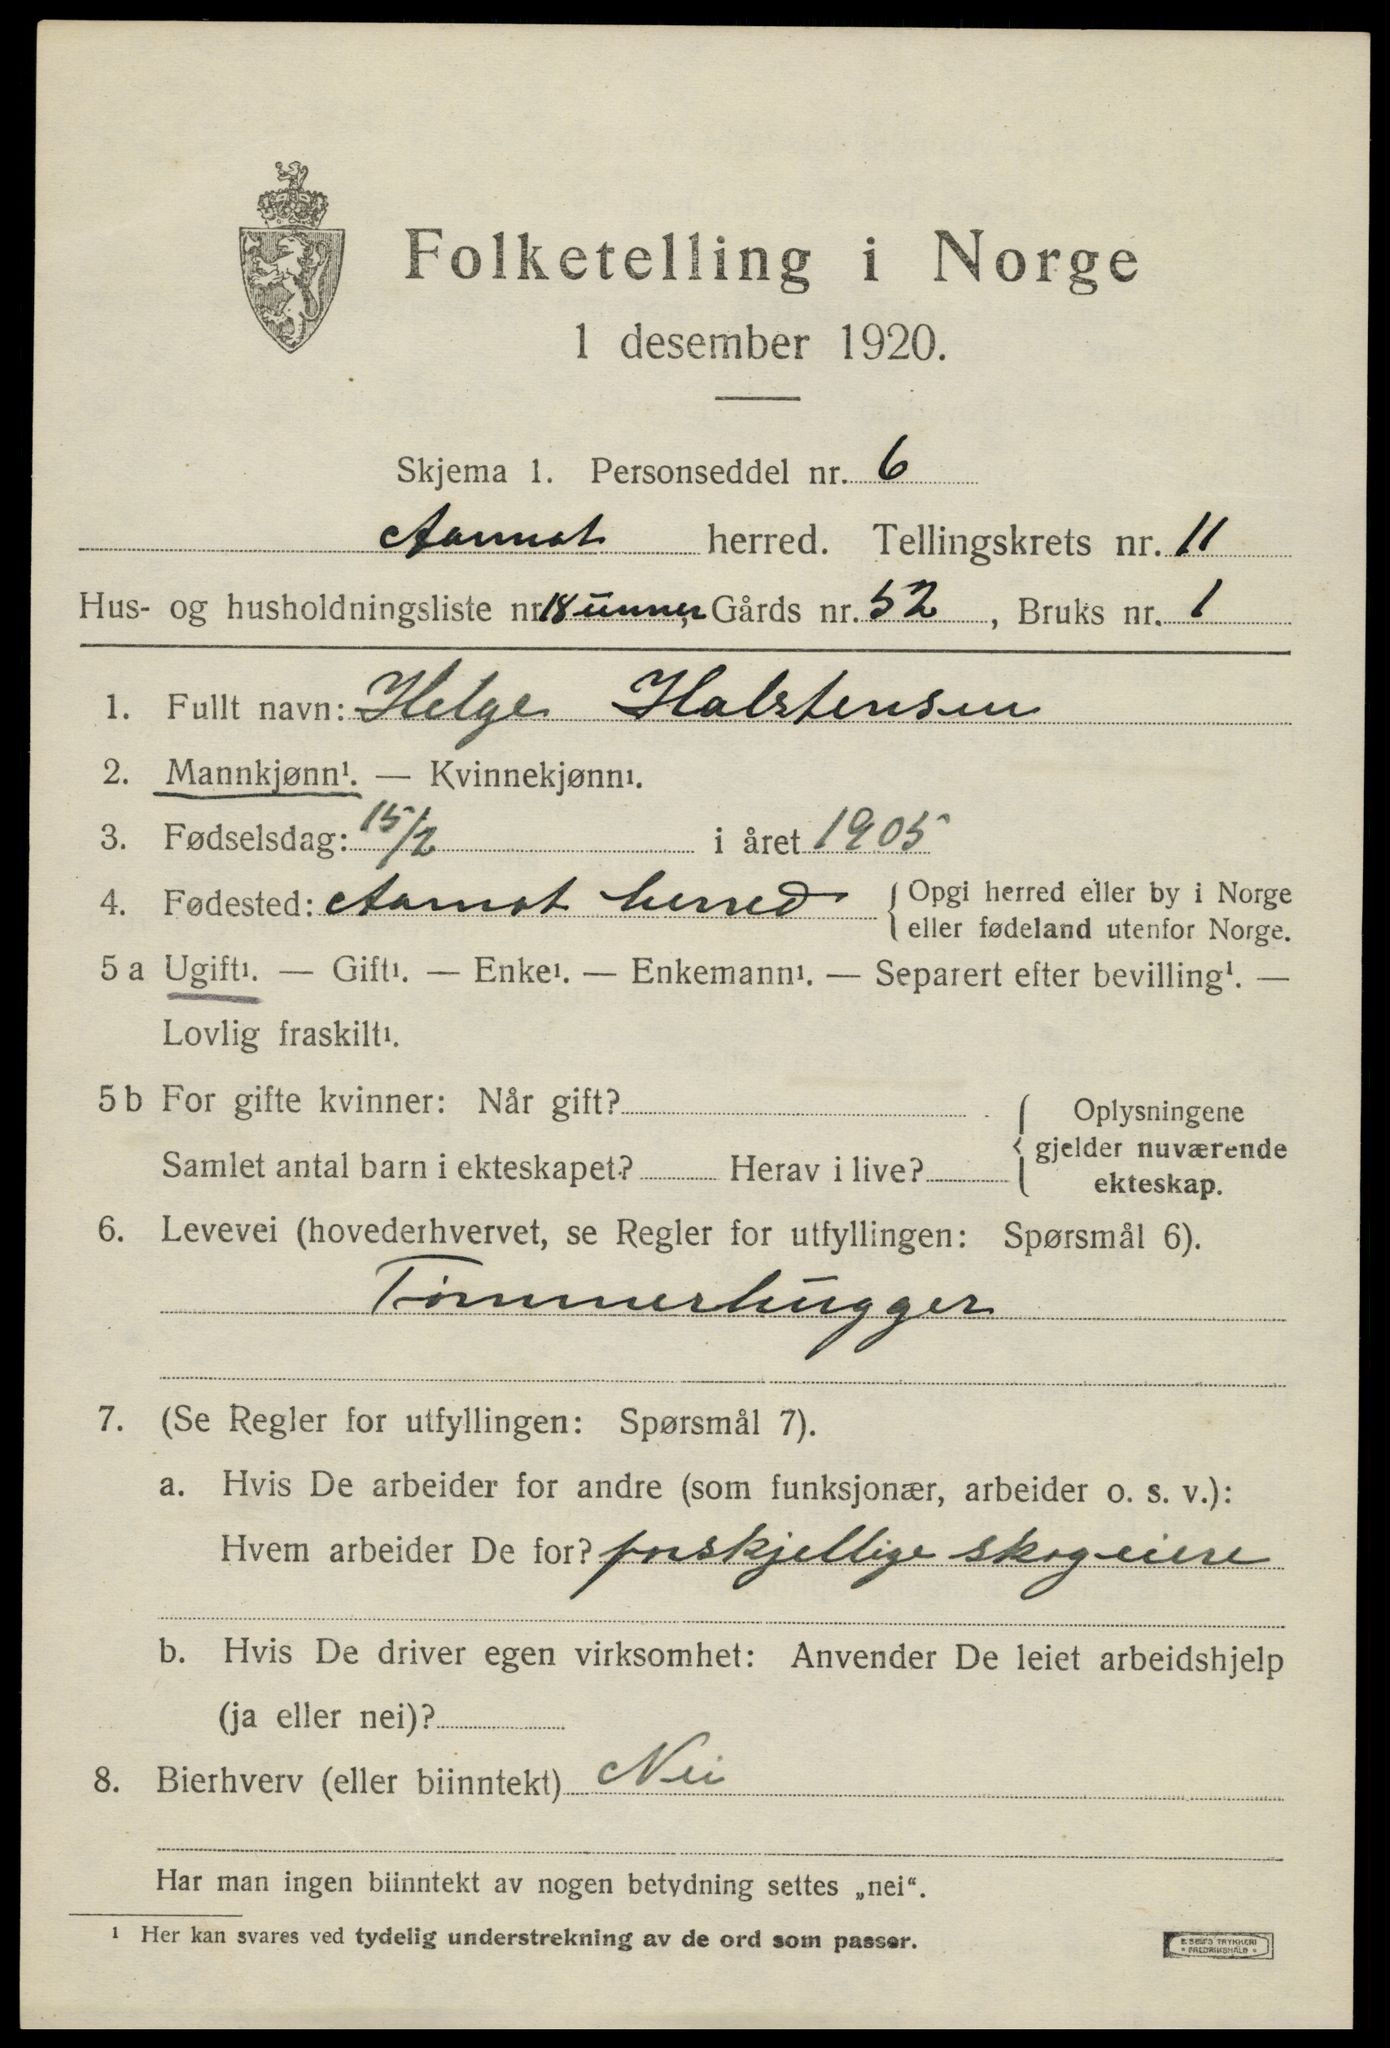 Folketelling i Norge
1 desember 1920.
Skjema 1. Personseddel nr. 6
Aamot herred. Tellingskrets nr. 11
Hus- og husholdningsliste nr. 18 Gårds nr. 52, Bruks nr. 1
1. Fullt navn: Helge Halstensen
2. Mannkjønn¹. — Kvinnekjønn¹.
3. Fødselsdag: 15/2 i året 1905
4. Fødested: Aamot herred { Opgi herred eller by i Norge
eller fødeland utenfor Norge.
5 a Ugift¹. — Gift¹. — Enke¹. — Enkemann¹. — Separert efter bevilling¹. —
Lovlig fraskilt¹.
5 b For gifte kvinner: Når gift?
Samlet antal barn i ekteskapet? Herav i live?
{ Oplysningene
gjelder nuværende
ekteskap.
6. Levevei (hovederhvervet, se Regler for utfyllingen: Spørsmål 6).
Tømmerhugger
7. (Se Regler for utfyllingen: Spørsmål 7).
a. Hvis De arbeider for andre (som funksjonær, arbeider o. s. v.):
Hvem arbeider De for? forskjellige skogeiere
b. Hvis De driver egen virksomhet: Anvender De leiet arbeidshjelp
(ja eller nei)?
8. Bierhverv (eller biinntekt) Nei
Har man ingen biinntekt av nogen betydning settes „nei“.
¹ Her kan svares ved tydelig understrekning av de ord som passer.
E. SEMS TRYKKERI
FREDRIKSHALD